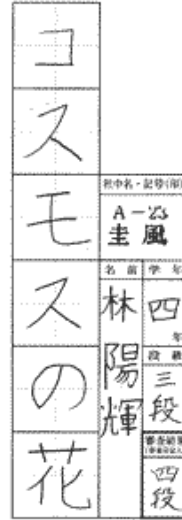 コスモスの花
社中名・記号(部)
A-23
圭風
名前
林陽輝
学年
四年
段級
三段
審査結果
四段